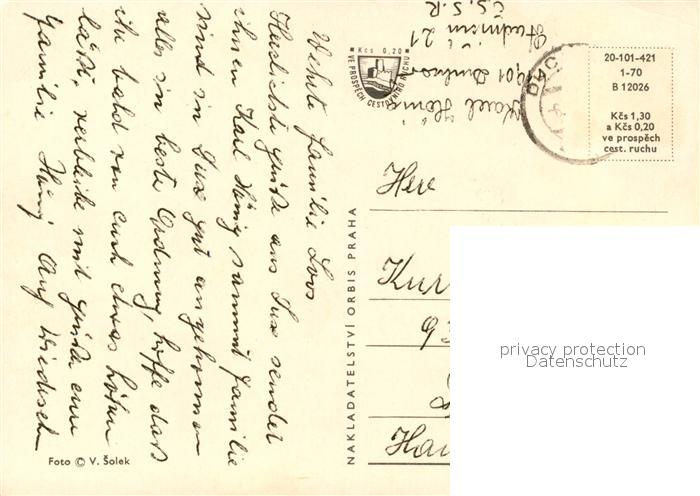 Werte Familie Loos
Herzlichste Grüße aus Dux sendet
ihnen Karl König sammt Familie
sind in Dux gut angekommen
alles in beste Ordnung, hoffe das
ihr bald von euch etwas hören
läßt, verbleibe mit Grüße eure
Familie König Auf Wiedersehn
Foto © V. Šolek
NAKLADATELSTVÍ ORBIS PRAHA
Kčs 0,20
VE PROSPĚCH CESTOVNÍHO RUCHU
Karel
21
Č.S.S.R
20-101-421
1-70
B 12026
Kčs 1,30
a Kčs 0,20
ve prospěch
cest. ruchu
Herr
Kur
privacy protection
Datenschutz